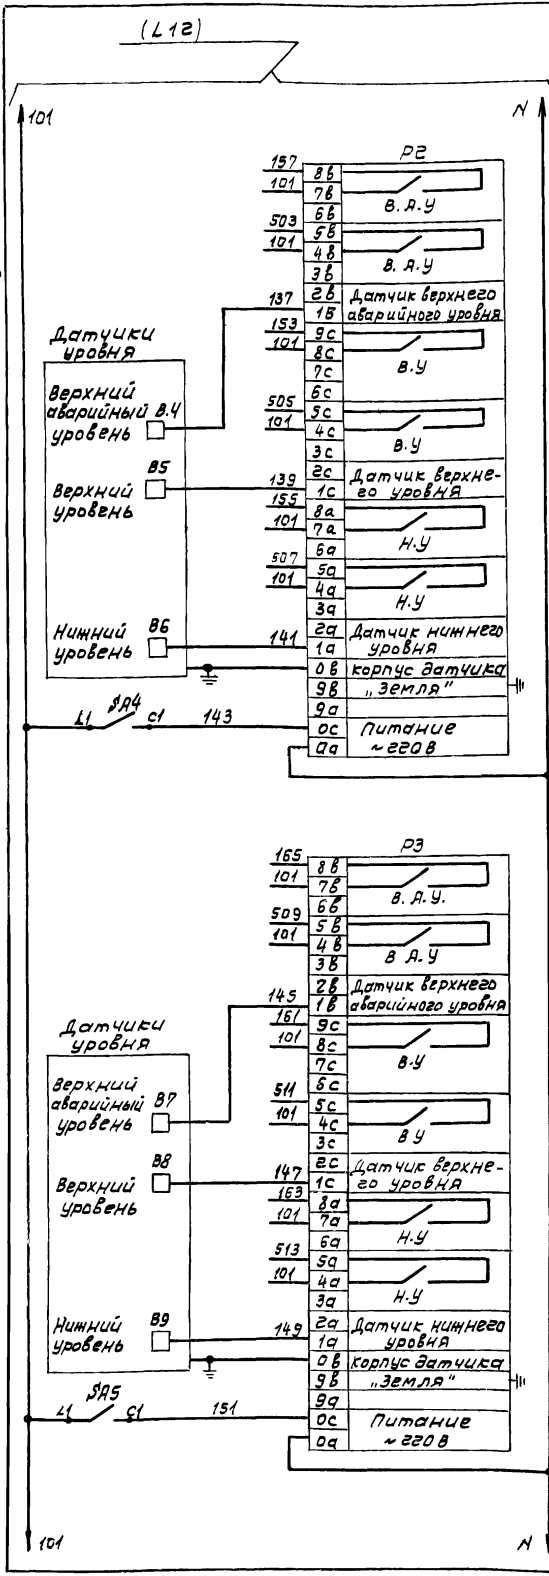 (L12)
101
N
P2
157
8в
101
7в
В.А.У
6в
503
5в
101
4в
В.А.У
3в
2в
Датчик верхнего
137
1в
аварийного уровня
153
9с
101
8с
В.У
7с
6с
505
5с
101
4с
В.У
3с
2с
Датчик верхне-
139
1с
го уровня
155
8а
101
7а
Н.У
6а
507
5а
101
4а
Н.У
3а
2а
Датчик нижнего
141
1а
уровня
0в
корпус датчика
9в
„Земля"
9а
0с
Питание
0а
~220В
Датчики
уровня
Верхний
аварийный В.4
уровень
В5
Верхний
уровень
Нижний В6
уровень
SA4
L1
C1
143
P3
165
8в
101
7в
В.А.У.
6в
509
5в
101
4в
В А.У
3в
2в
Датчик верхнего
145
1в
аварийного уровня
161
9с
101
8с
В.У
7с
6с
511
5с
101
4с
В У
3с
2с
Датчик верхне-
147
1с
го уровня
163
8а
101
7а
Н.У
6а
513
5а
101
4а
Н.У
3а
2а
Датчик нижнего
149
1а
уровня
0в
корпус датчика
9в
„Земля"
9а
0с
Питание
0а
~220В
Датчики
уровня
Верхний
аварийный В7
уровень
В8
Верхний
уровень
Нижний В9
уровень
SA5
L1
C1
151
101
N